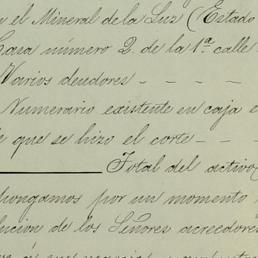 el Mineral de la Luz (Estado
Casa número 2. de la 1ª calle
Varios deudores - - - -
Numerario existente en caja e
que se hizo el corte - -
Total del activo
pongamos por un momento
lución de los Señores acreedores